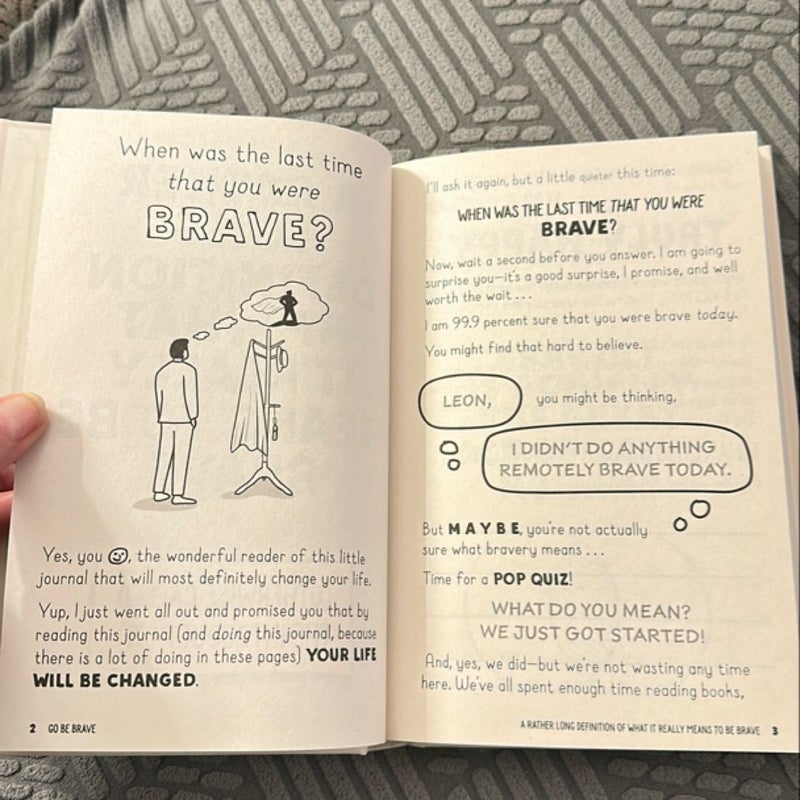 When was the last time
that you were
BRAVE?
Yes, you , the wonderful reader of this little
journal that will most definitely change your life.
Yup, I just went all out and promised you that by
reading this journal (and doing this journal, because
there is a lot of doing in these pages) YOUR LIFE
WILL BE CHANGED.
2 GO BE BRAVE
I'll ask it again, but a little quieter this time:
WHEN WAS THE LAST TIME THAT YOU WERE
BRAVE?
Now, wait a second before you answer. I am going to
surprise you—it's a good surprise, I promise, and well
worth the wait ...
I am 99.9 percent sure that you were brave today.
You might find that hard to believe.
LEON, you might be thinking,
I DIDN'T DO ANYTHING
REMOTELY BRAVE TODAY.
But MAYBE, you're not actually
sure what bravery means ...
Time for a POP QUIZ!
WHAT DO YOU MEAN?
WE JUST GOT STARTED!
And, yes, we did—but we're not wasting any time
here. We've all spent enough time reading books,
A RATHER LONG DEFINITION OF WHAT IT REALLY MEANS TO BE BRAVE 3